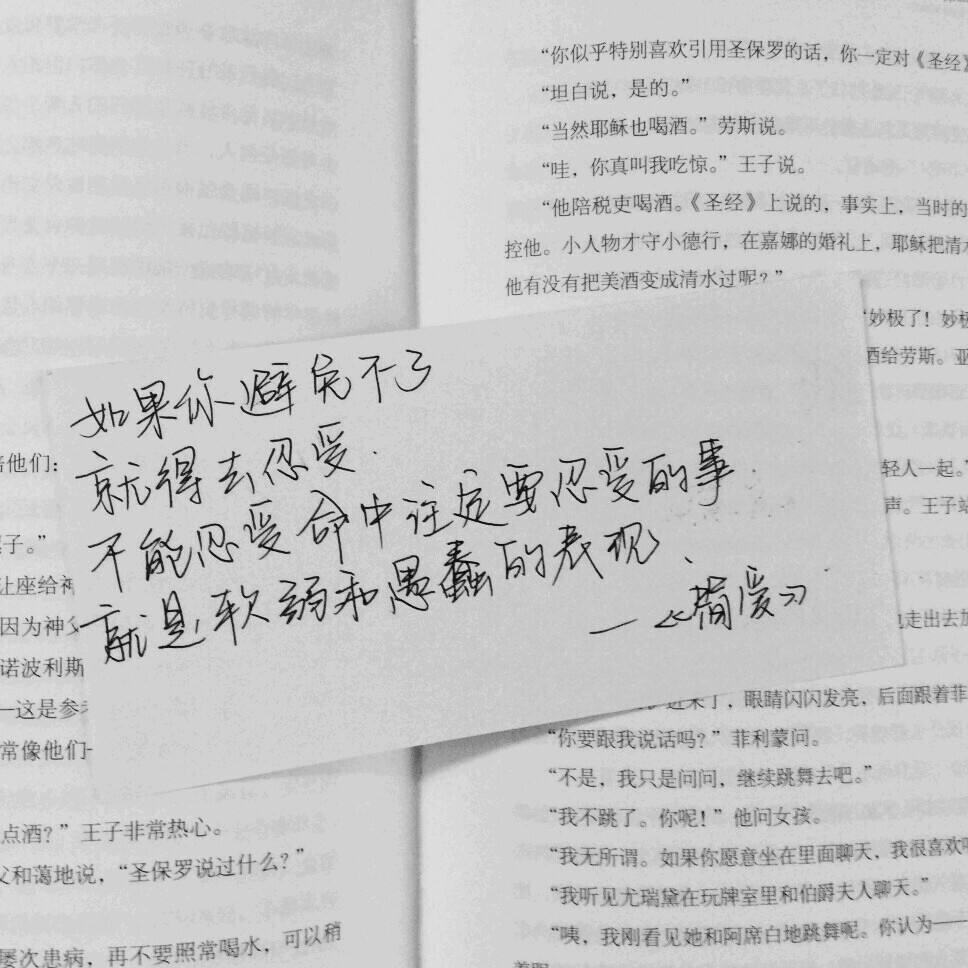 “你似乎特别喜欢引用圣保罗的话，你一定对《圣经》
“坦白说，是的。”
“当然耶稣也喝酒。”劳斯说。
“哇，你真叫我吃惊。”王子说。
“他陪税吏喝酒。《圣经》上说的，事实上，当时的
控他。小人物才守小德行，在嘉娜的婚礼上，耶稣把清水
他有没有把美酒变成清水过呢？”
“妙极了！妙极
酒给劳斯。亚
轻人一起。”
声。王子站
也走出去加
进来了，眼睛闪闪发亮，后面跟着菲
“你要跟我说话吗？”菲利蒙问。
“不是，我只是问问，继续跳舞去吧。”
“我不跳了。你呢！”他问女孩。
“我无所谓。如果你愿意坐在里面聊天，我很喜欢
“我听见尤瑞黛在玩牌室里和伯爵夫人聊天。”
“咦，我刚看见她和阿席白地跳舞呢。你认为——
如果你避免不了
就得去忍受.
不能忍受命中注定要忍受的事.
就是软弱和愚蠢的表现.
—《简爱》
陪他们：
子。”
让座给神
因为神父
诺波利斯
—这是参
常像他们
点酒？”王子非常热心。
父和蔼地说，“圣保罗说过什么？”
屡次患病，再不要照常喝水，可以稍